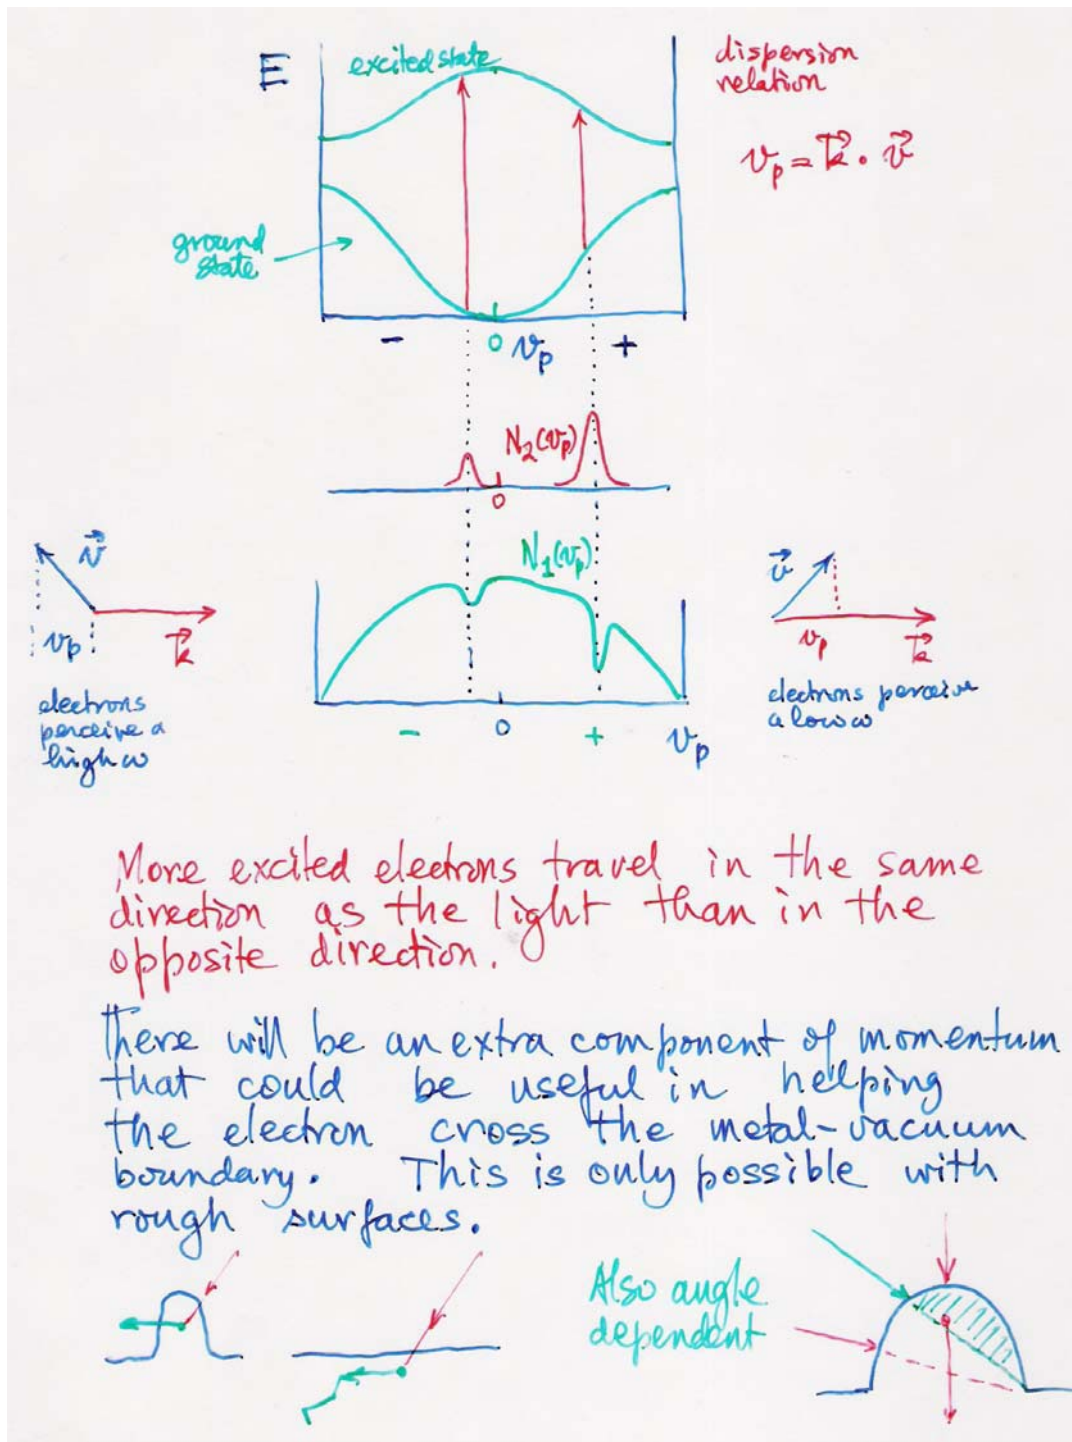 E
excited state
dispersion
relation
v_p = k⃗ · v⃗
ground
state
- 0 v_p +
N_2(v_p)
0
v⃗
v_p
k⃗
electrons
perceive a
high ω
N_1(v_p)
- 0 + v_p
v⃗
v_p
k⃗
electrons perceive
a low ω
More excited electrons travel in the same
direction as the light than in the
opposite direction.
There will be an extra component of momentum
that could be useful in helping
the electron cross the metal-vacuum
boundary. This is only possible with
rough surfaces.
Also angle
dependent